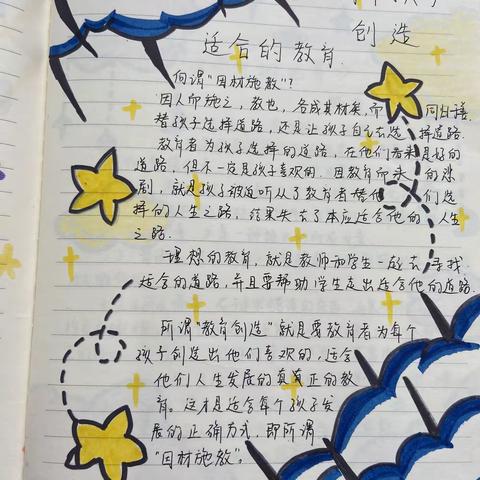 创造
适合的教育
何谓"因材施教"?
因人而施之,教也,各成其材矣,而 同日语
替孩子选择道路,还是让孩子自己去选择道路.
教育者为孩子选择的道路,在他们看来是好的
道路,但不一定是孩子喜欢的.因教育而来的悲
剧,就是孩子被迫听从了教育者替他们选
择的人生之路,结果失去了本应适合他的人生
之路.
理想的教育,就是教师和学生一起去寻找
适合的道路,并且要帮助学生走出适合他的道路
所谓"教育创造"就是要教育者为每个
孩子创造出他们喜欢的,适合
他们人生发展的真正的教
育。这才是适合每个孩子发
展的正确方式,即所谓
"因材施教"。